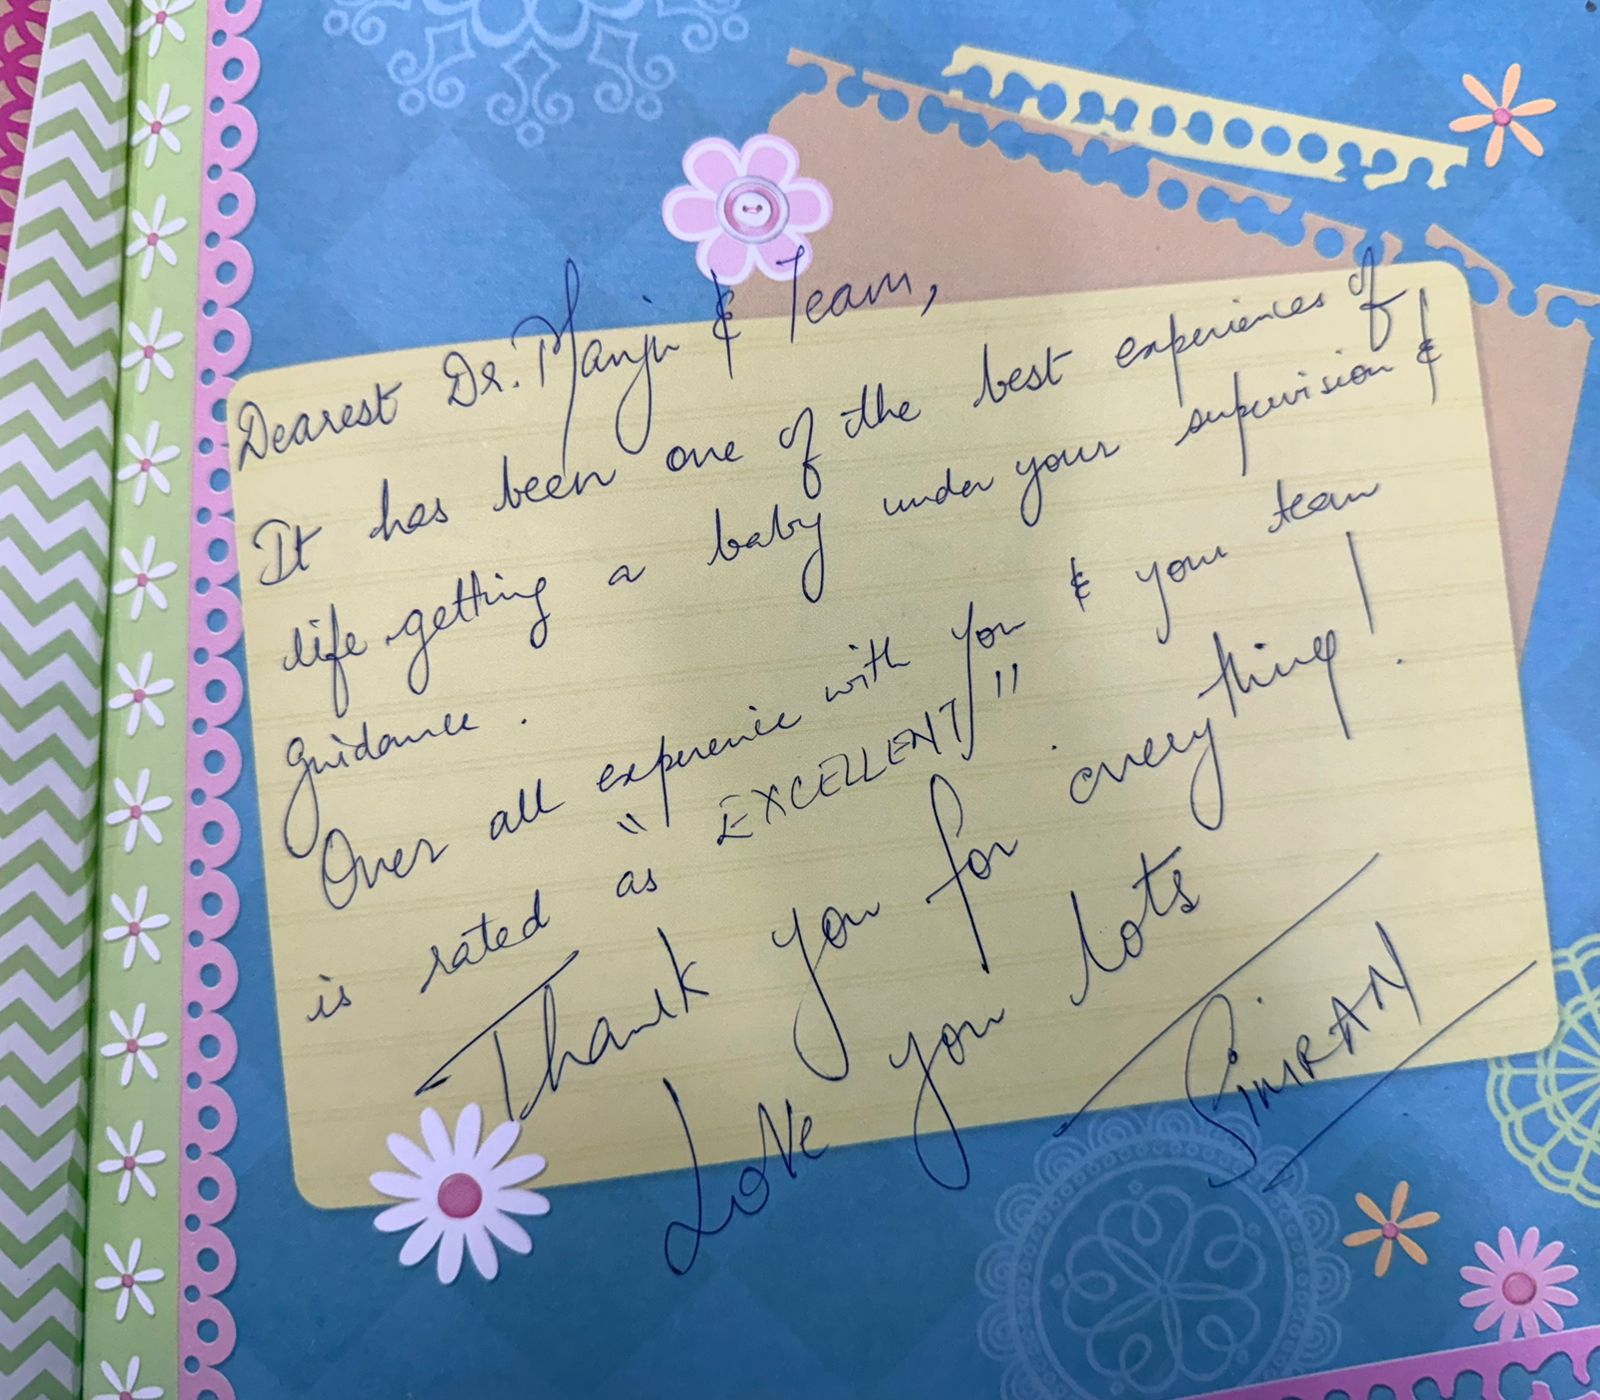 Dearest Dr. Manju & Team,
It has been one of the best experiences of
life getting a baby under your supervision &
guidance.
Over all experience with you & your team
is rated as "EXCELLENT"
Thank you for everything!
Love you lots
SIMRAN